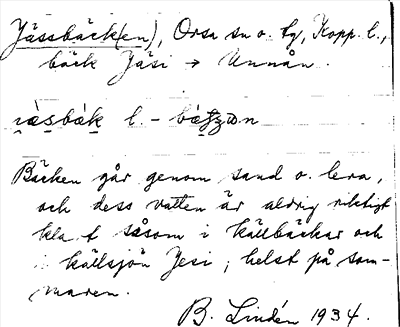 Jässbäck(en), Orsa sn o. tg, Kopp. l.,
bäck Jäsi → Unnån.
l. –
Bäcken går genom sand o. lera,
och dess vatten är aldrig riktigt
klart såsom i källbäckar och
i källsjön Jesi, helst på som-
maren.
B. Lindén 1934.